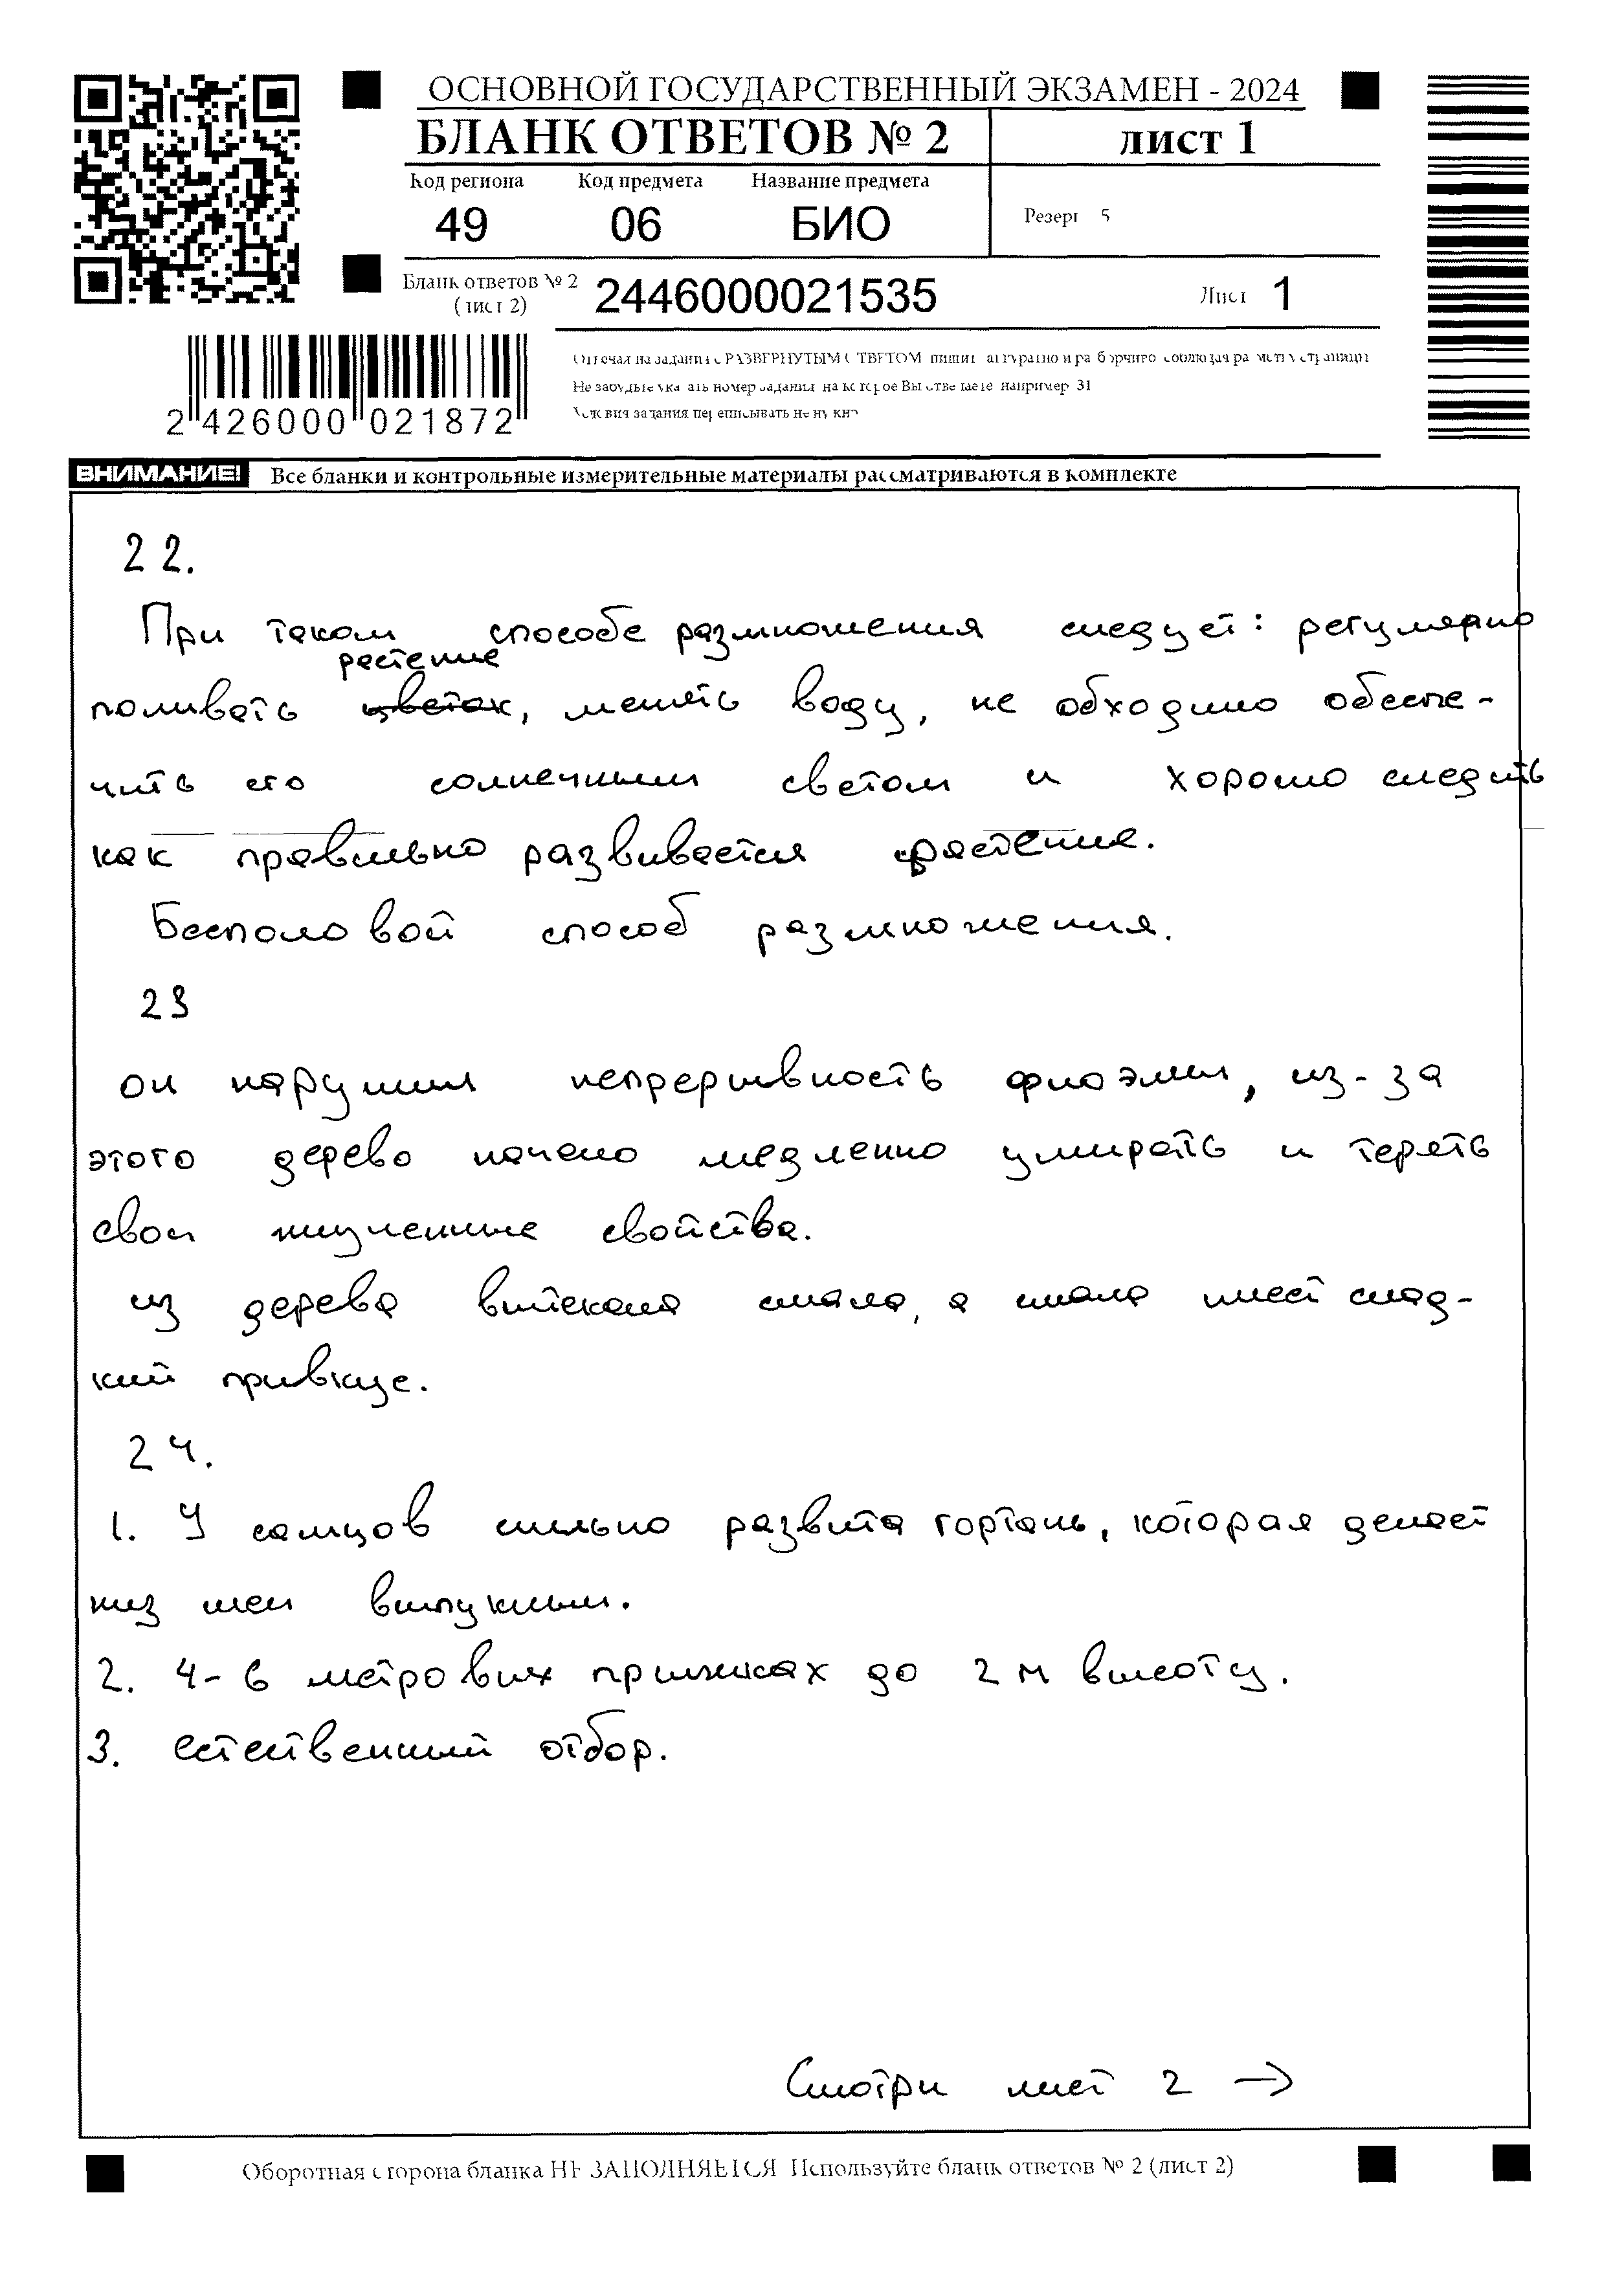 ОСНОВНОЙ ГОСУДАРСТВЕННЫЙ ЭКЗАМЕН - 2024
БЛАНК ОТВЕТОВ № 2
лист 1
Код региона Код предмета Название предмета
49 06 БИО
Резерв 5
Бланк ответов № 2
(лист 2)
2446000021535
Лист 1
2 426000 021872
Отвечая на задания с РАЗВЕРНУТЫМ ОТВЕТОМ, пишите аккуратно и разборчиво, соблюдая разметку страницы
Не забудьте указать номер задания, на которое Вы отвечаете, например, 31
Условия задания переписывать не нужно
ВНИМАНИЕ! Все бланки и контрольные измерительные материалы рассматриваются в комплекте
22.
При таком способе размножения следует: регулярно
растение
поливать цветок, менять воду, не обходимо обеспе-
чить его солнечным светом и хорошо следить
как правильно развивается растение.
Бесполовой способ размножения.
23
он нарушил непрерывность флоэмы, из-за
этого дерево начало медленно умирать и терять
свои жизненные свойства.
из дерева вытекала смола, а смола имеет слад-
кий привкус.
24.
1. У самцов сильно развита гортань, которая делает
низ шеи выпуклым.
2. 4-6 метровых прыжках до 2 м высоту.
3. естественный отбор.
Смотри лист 2 →
Оборотная сторона бланка НЕ ЗАПОЛНЯЕТСЯ Используйте бланк ответов № 2 (лист 2)